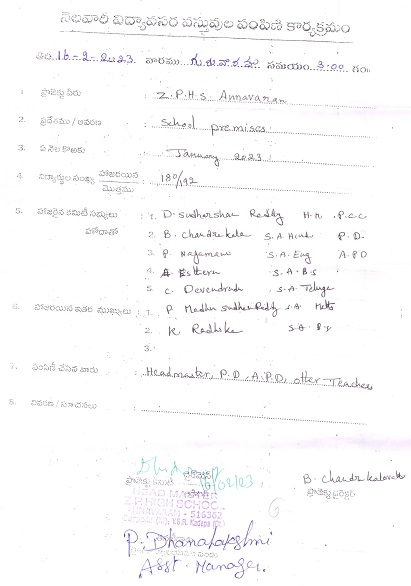 నెలవారీ విద్యావసర వస్తువుల పంపిణీ కార్యక్రమం
తేది 16-2-2023 వారము గురువారము సమయం 3.00 గం॥
1. ప్రాజెక్టు పేరు : Z.P.H.S. Annavaram
2. ప్రదేశము / ఆవరణ : School premises
3. ఏ నెల కొఱకు : January 2023
4. విద్యార్థుల సంఖ్య హాజరయిన / మొత్తము : 180/192
5. హాజరైన కమిటీ సభ్యులు హోదాతో : 1. D. Sudharshan Reddy H.M. P.C.C
2. B. Chandrakala S.A Hindi P.D.
3. P. Nagamani S.A. Eng A.P.D
4. A Esthern S.A.B.S
5. C. Devendrudu S.A Telugu
6. హాజరయిన ఇతర ముఖ్యులు : 1. P Madhu Sudhan Reddy S.A Maths
2. K. Radhika S.A
3.
7. పంపిణీ చేసిన వారు : Headmaster, P.D, A.P.D, other Teachers
8. వివరణ / సూచనలు :
ప్రాజెక్టు కమిటీ
HEAD MASTER
Z.P.HIGH SCHOOL
516362
B. Chandrakalavathi
ప్రాజెక్టు డైరెక్టర్
6
P. Dhanalakshmi
Asst. Manager.